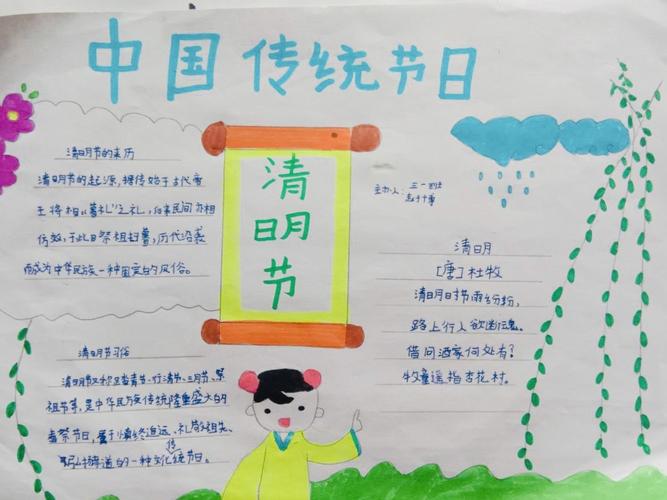 中国传统节日
清明节的来历
清明节的起源,据传始于古代帝
王将相"墓礼"之礼,后来民间亦相
仿效,于此日祭祖扫墓,历代沿袭
而成为中华民族一种固定的风俗。
清明节
主办人:
清明
[唐]杜牧
清明时节雨纷纷,
路上行人欲断魂。
借问酒家何处有?
牧童遥指杏花村。
清明节习俗
清明节又称踏青节、行清节、三月节、祭
祖节等,是中华民族传统隆重盛大的
春祭节日,属于慎终追远、礼敬祖先、
弘扬孝道的一种文化传统节日。